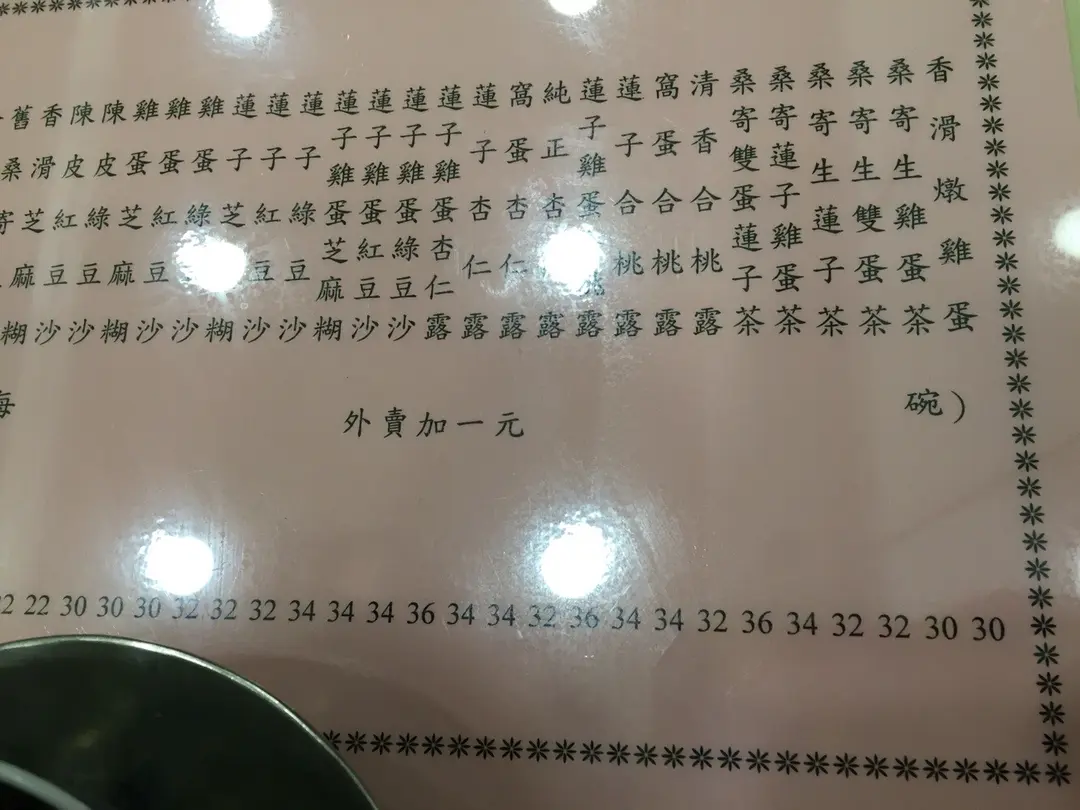 香滑燉雞蛋
桑寄生雞蛋茶
桑寄生雙蛋茶
桑寄生蓮子茶
桑寄蓮子雞蛋茶
桑寄雙蛋蓮子茶
清香合桃露
窩蛋合桃露
蓮子合桃露
蓮子雞蛋桃露
純正杏露
窩蛋杏仁露
蓮子杏仁露
蓮子雞蛋杏仁露
蓮子雞蛋綠豆沙
蓮子雞蛋紅豆沙
蓮子雞蛋芝麻糊
蓮子綠豆沙
蓮子紅豆沙
蓮子芝糊
雞蛋綠沙
雞蛋紅豆沙
雞蛋芝麻糊
陳皮綠豆沙
陳皮紅豆沙
香滑芝麻糊
舊桑寄
每 外賣加一元 碗）
22 30 30 30 32 32 32 34 34 34 36 34 34 32 36 34 34 32 36 34 32 32 30 30